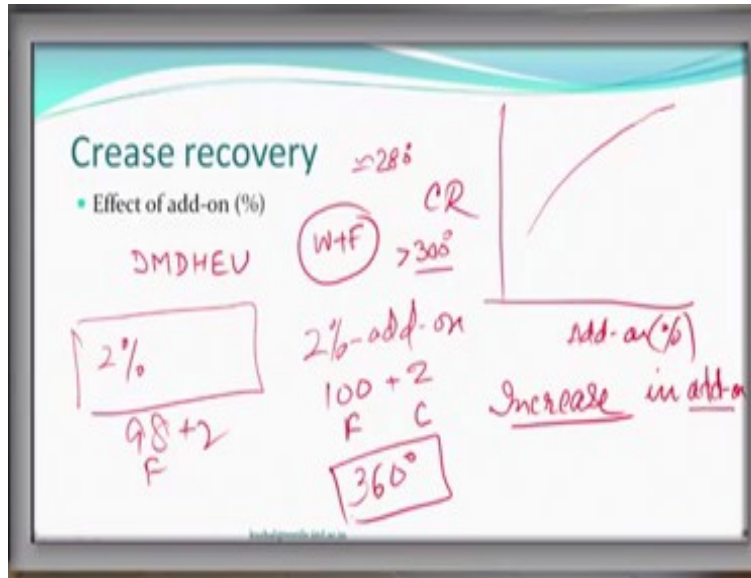 Crease recovery
• Effect of add-on (%)
≃280°
CR
W+F
>300°
DMDHEU
2%
98+2
F
2%-add-on
100 + 2
F C
360°
Add-on(%)
Increase in add-on